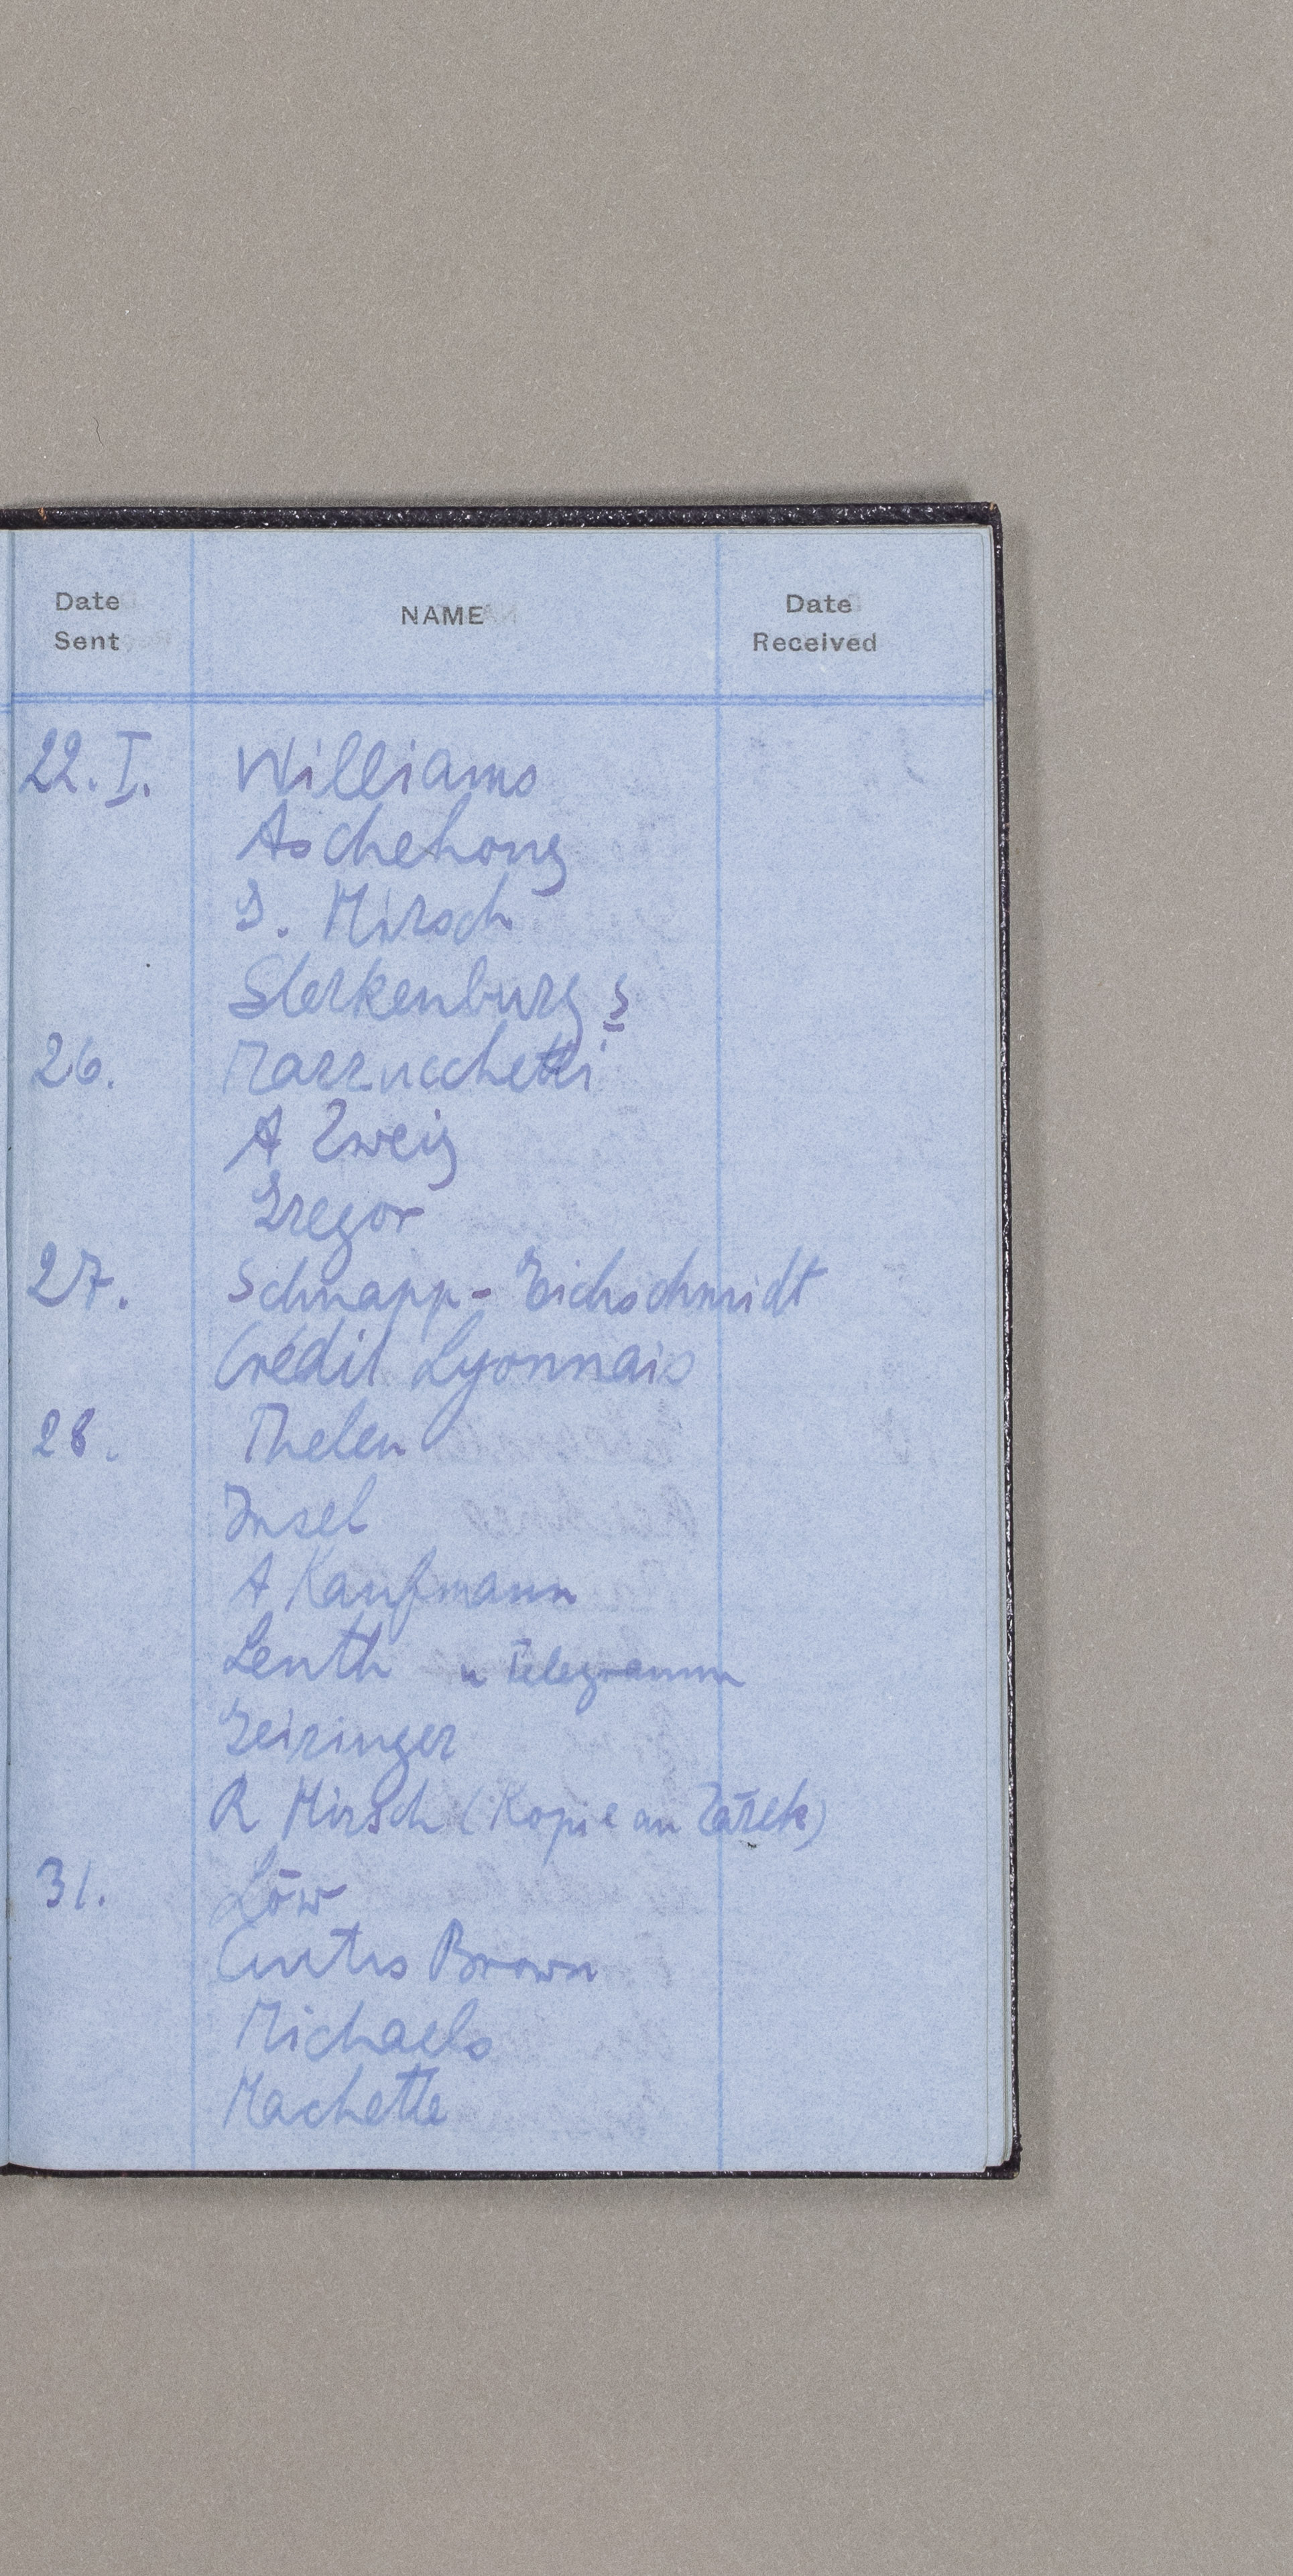 Date Sent NAME Date Received
22. I. Williams
Aschehoug
S. Hirsch
Sterkenburg S
26. Mazzucchetti
A Zweig
Gregor
27. Schnapp - Eichschmidt
Crédit Lyonnais
28. Thelen
Insel
A Kaufmann
Lenth u Telegramm
Geiringer
R Hirsch (Kopie an Zarek)
31. Löw
Curtis Brown
Michaels
Hachette